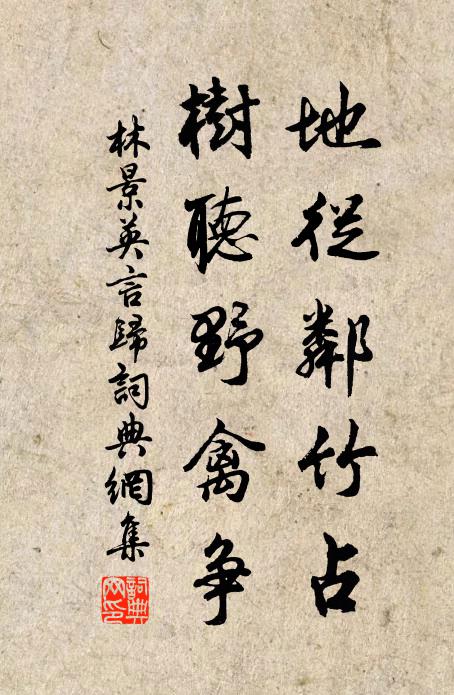 地從鄰竹占
樹聽野禽争
林景英言歸詞典網集
詞典网印